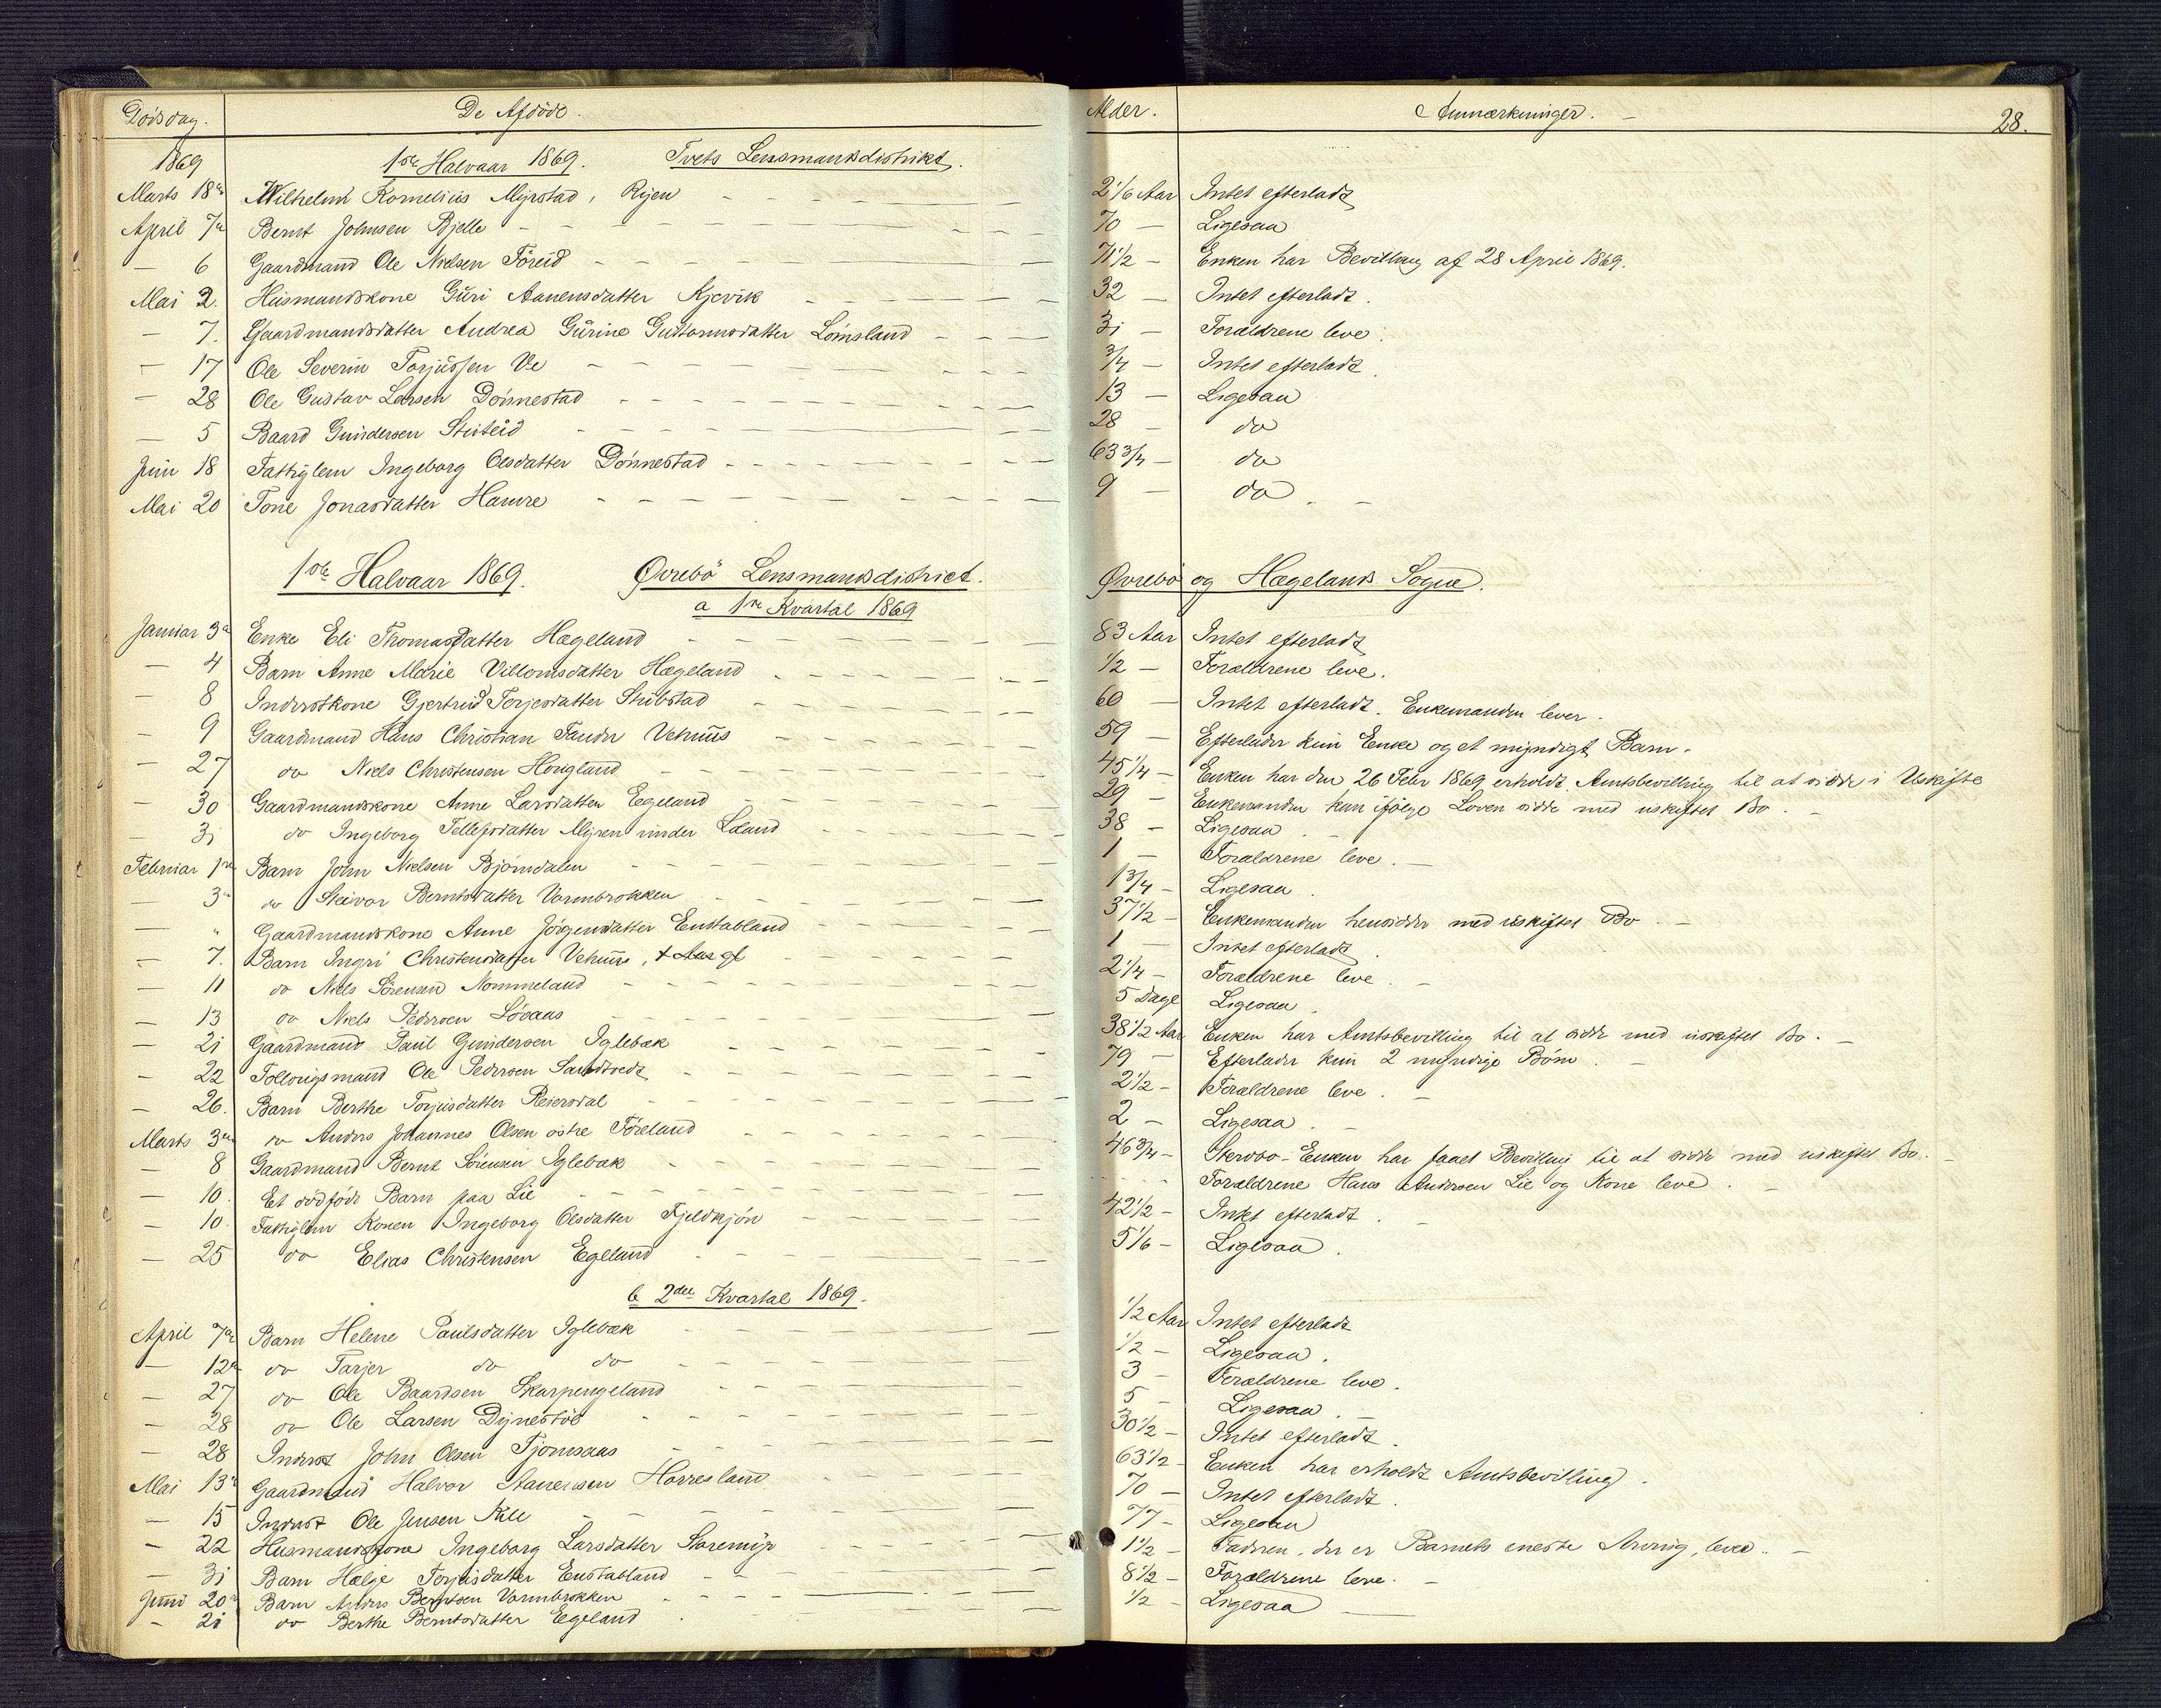 Dødsdag. De Afdöde. Alder. Anmærkninger. 28.
1869 1ste Halvaar 1869. Tvets Lensmandsdistrikt.
Marts 18de Wilhelm Kornelius Myrstad, Ryen 2 1/6 Aar Intet efterladt
April 7de Bernt Johnsen Bjelle 70 Ligesaa
6 Gaardmand Ole Nielsen Föreid 71 1/2 Enken har Bevilling af 28 April 1869.
Mai 2. Husmandskone Guri Aanensdatter Kjevik 32 Intet efterladt.
7. Gaardmandsdatter Andrea Gurine Guttormsdatter Lömsland 31 Forældrene leve.
17 Ole Severin Torjussen Ve 3/4 Intet efterladt.
28 Ole Gustav Larsen Dönnestad 13 Ligesaa
5 Baard Gundersen 28 do
Juni 18 Fattiglem Ingeborg Olsdatter Dönnestad 63 3/4 do
Mai 20 Tone Jonasdatter Hamre 9 do
1ste Halvaar 1869. Øvrebö Lensmandsdistrict. Øvrebö og Hægelands Sogne.
a 1ste Kvartal 1869
Januar 3de Enke Eli Thomasdatter Hægeland 83 Aar Intet efterladt
4 Barn Anne Marie Villomsdatter Hægeland 1/2 Forældrene leve.
8 Inderstkone Gjertrud Terjesdatter Stubstad 60 Intet efterladt. Enkemanden lever.
9 Gaardmand Hans Christian Vehuus 59 Efterlader kun Enke og et myndigt Barn.
27 do Niels Christensen Hougland 45 1/4 Enken har den 26 Febr 1869 erholdt Amtsbevilling til at sidde i Uskifte
30 Gaardmandskone Anne Larsdatter Egeland 29 Enkemanden kan ifølge Loven sidde med uskiftet Bo.
31 do Ingeborg Tellefsdatter Myren under 38 Ligesaa
Februar 1ste Barn John Nielsen Bjørndalen 1 Forældrene leve.
3die do Berntsdatter Vormbrokken 1 3/4 Ligesaa.
" Gaardmandskone Anne Jörgensdatter Eustabland 37 1/2 Enkemanden hensidder med uskiftet Bo.
7. Barn Ingri Christensdatter Vehuus, 1 Intet efterladt.
11 do Niels Sörensen Nommeland 2 1/4 Forældrene leve.
13 do Niels Pedersen Lövaas 5 Dage Ligesaa.
21 Gaardmand Paul Gundersen Iglebæk 38 1/2 Aar Enken har Amtsbevilling til at sidde med uskiftet Bo.
22 Follougsmand Ole Pedersen 79 Efterlader kun 2 myndige Børn.
26. Barn Berthe Torjusdatter Reiersdal 2 1/2 Forældrene leve.
Marts 3die do Anders Johannes Olsen östre Föreland 2 Ligesaa.
8 Gaardmand Bernt Sörensen Iglebæk 46 3/4 Stervbo-Enken har faaet Bevilling til at sidde med uskiftet Bo.
10. Et dödfödt Barn paa Lie Forældrene Hans Andersen Lie og Kone leve.
10. Fattiglem Konen Ingeborg Olsdatter Fjeldkjön 42 1/2 Intet efterladt.
25 do Elias Christensen Egeland 5 1/6 Ligesaa.
b 2det Kvartal 1869.
April 7de Barn Helene Paulsdatter Iglebæk 1/2 Aar Intet efterladt
12te do Tarjer do do 1/2 Ligesaa.
27 do Ole Baardsen Skarpengeland 3 Forældrene leve.
28 do Ole Larsen Dynestöl 5 Ligesaa.
28 Inderst John Olsen Tjomsaas 30 1/2 Intet efterladt.
Mai 13de Gaardmand Halvor Aanensen Horresland 63 1/2 Enken har erholdt Amtsbevilling.
15 Inderst Ole Jensen Kile 70 Intet efterladt.
22 Husmandskone Ingeborg Larsdatter Storemyr 77 Ligesaa
31 Barn Helge Torjusdatter Eustabland 1 1/2 Faderen, der er Barnets eneste Arving, lever.
Juni 20de Barn Anders Berntsen Vormbrokken 8 1/2 Forældrene leve.
21 do Berthe Berntsdatter Egeland 1/2 Ligesaa